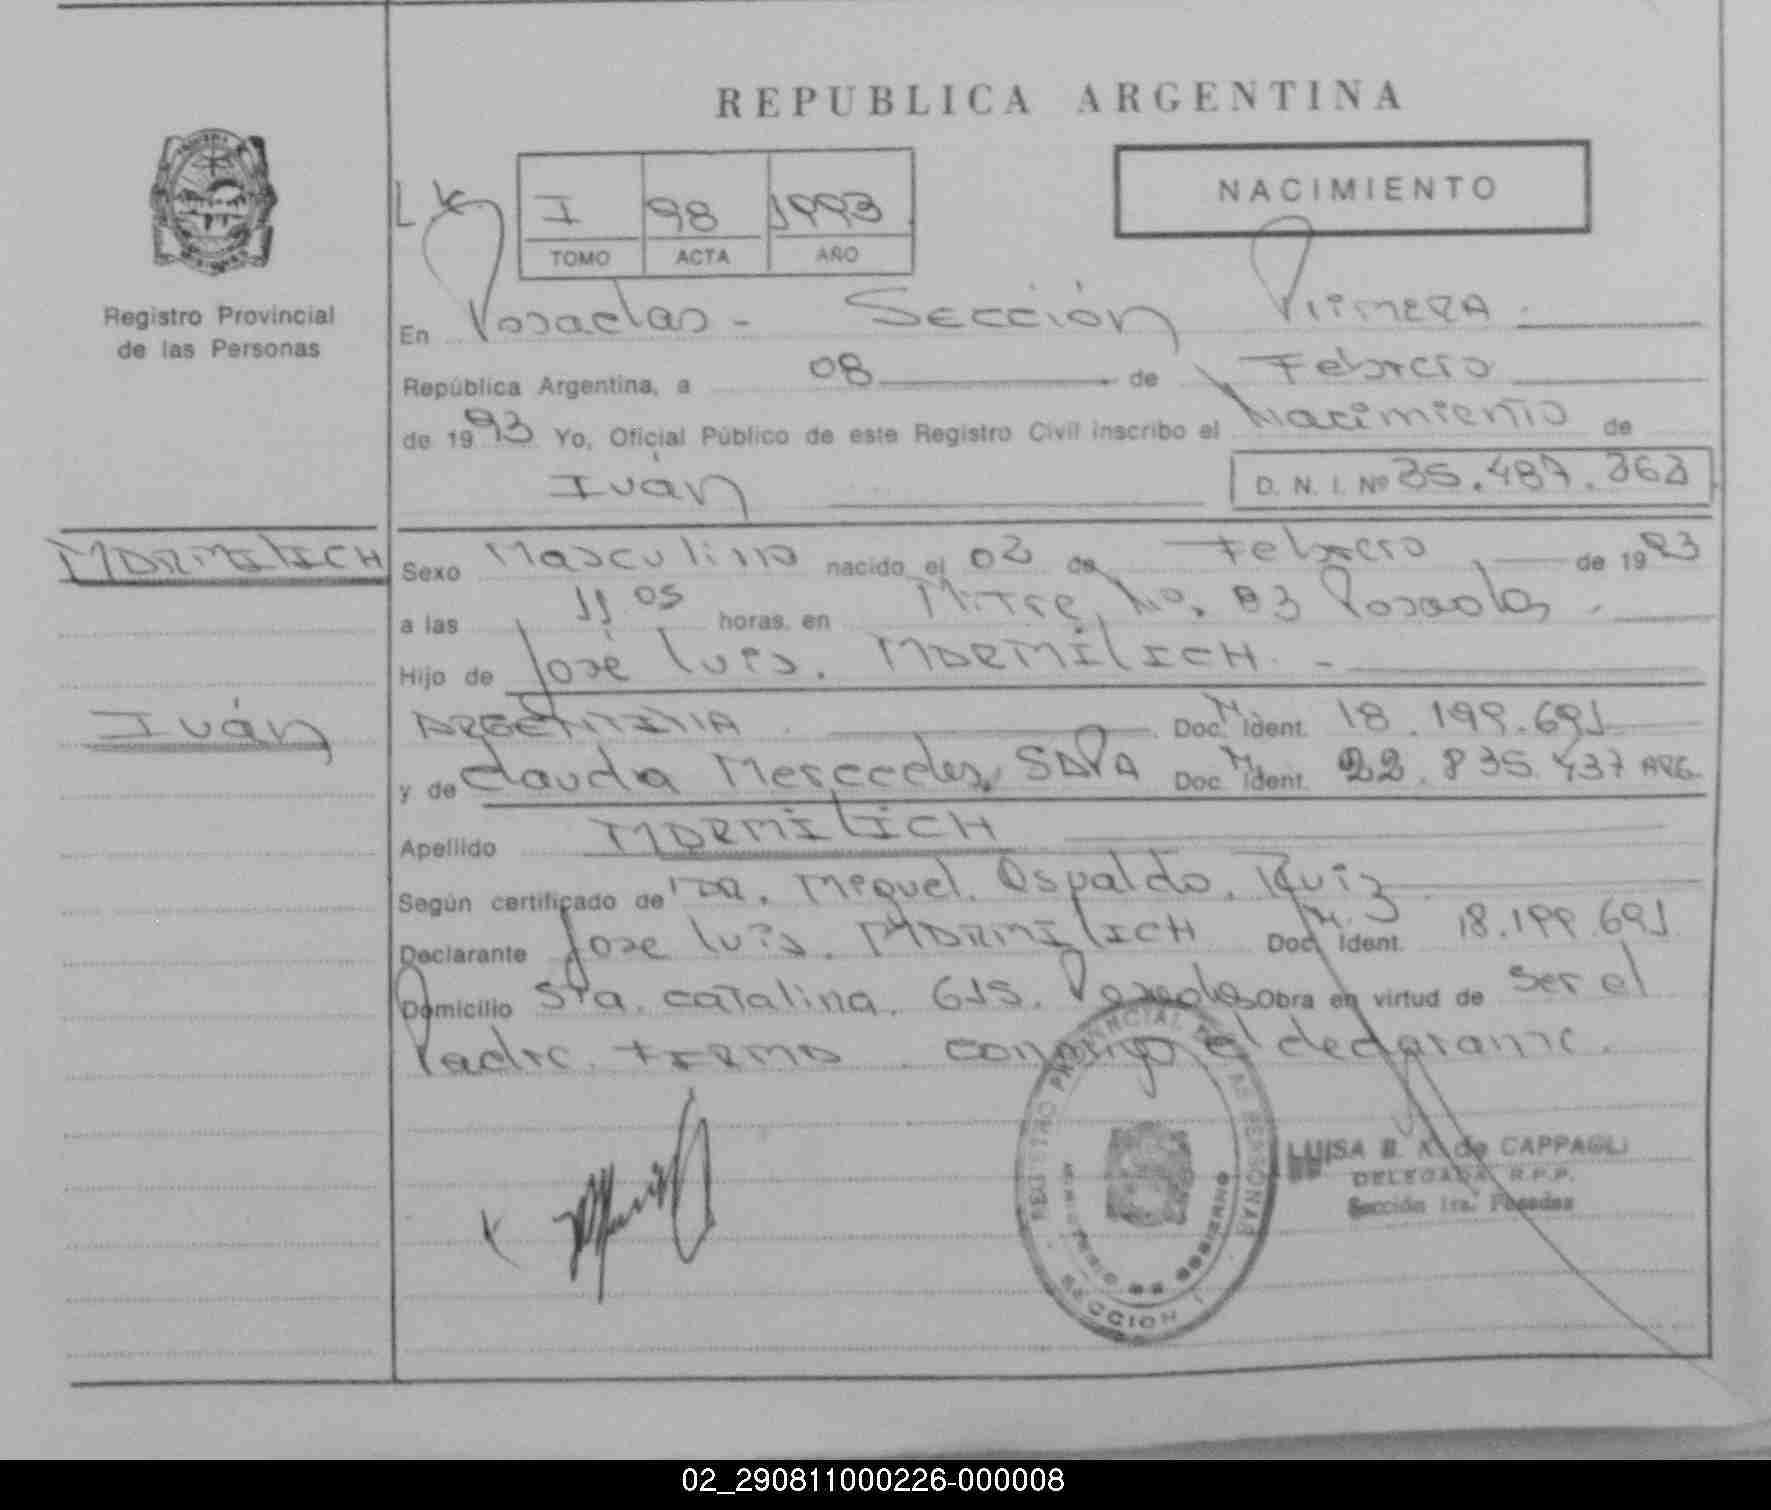 REPUBLICA ARGENTINA
NACIMIENTO
I 98 1993
TOMO ACTA AÑO
Registro Provincial
de las Personas
En Posadas - Sección Primera.
República Argentina, a 08 de Febrero
de 1993 Yo, Oficial Público de este Registro Civil inscribo el Nacimiento de
Iván
D. N. I. Nº 35.487.
MORMILICH
Iván
Sexo Masculino nacido el 02 de Febrero de 1993
a las 11 05 horas, en Mitre No. 83 Posadas.
Hijo de José Luis. MORMILICH. -
ARGENTINA. Doc. M. Ident. 18.199.691
y de Claudia Mercedes, Doc. M. Ident. 22.835.437 ARG.
Apellido MORMILICH
Según certificado de Dr. Miguel. Osvaldo. Ruiz
Declarante José Luis. MORMILICH Doc. M. Ident. 18.199.691
Domicilio Sta. Catalina. 615. Posadas Obra en virtud de ser el
Padre. FIRMA. conmigo el declarante.
REGISTRO PROVINCIAL DE LAS PERSONAS
GOBIERNO
SECCION 1
LUISA B. A. de CAPPAGLI
DELEGADA R.P.P.
Sección 1ra. Posadas
02_290811000226-000008